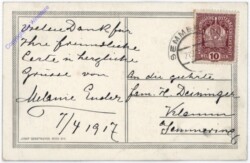 Vielen Dank für
Ihre freundliche
Karte u. herzliche
Grüsse von
Melanie Ender
7/4 1917
SEMME
10
An die geehrte
Fam. H. Deisinger
Klamm
Semmering